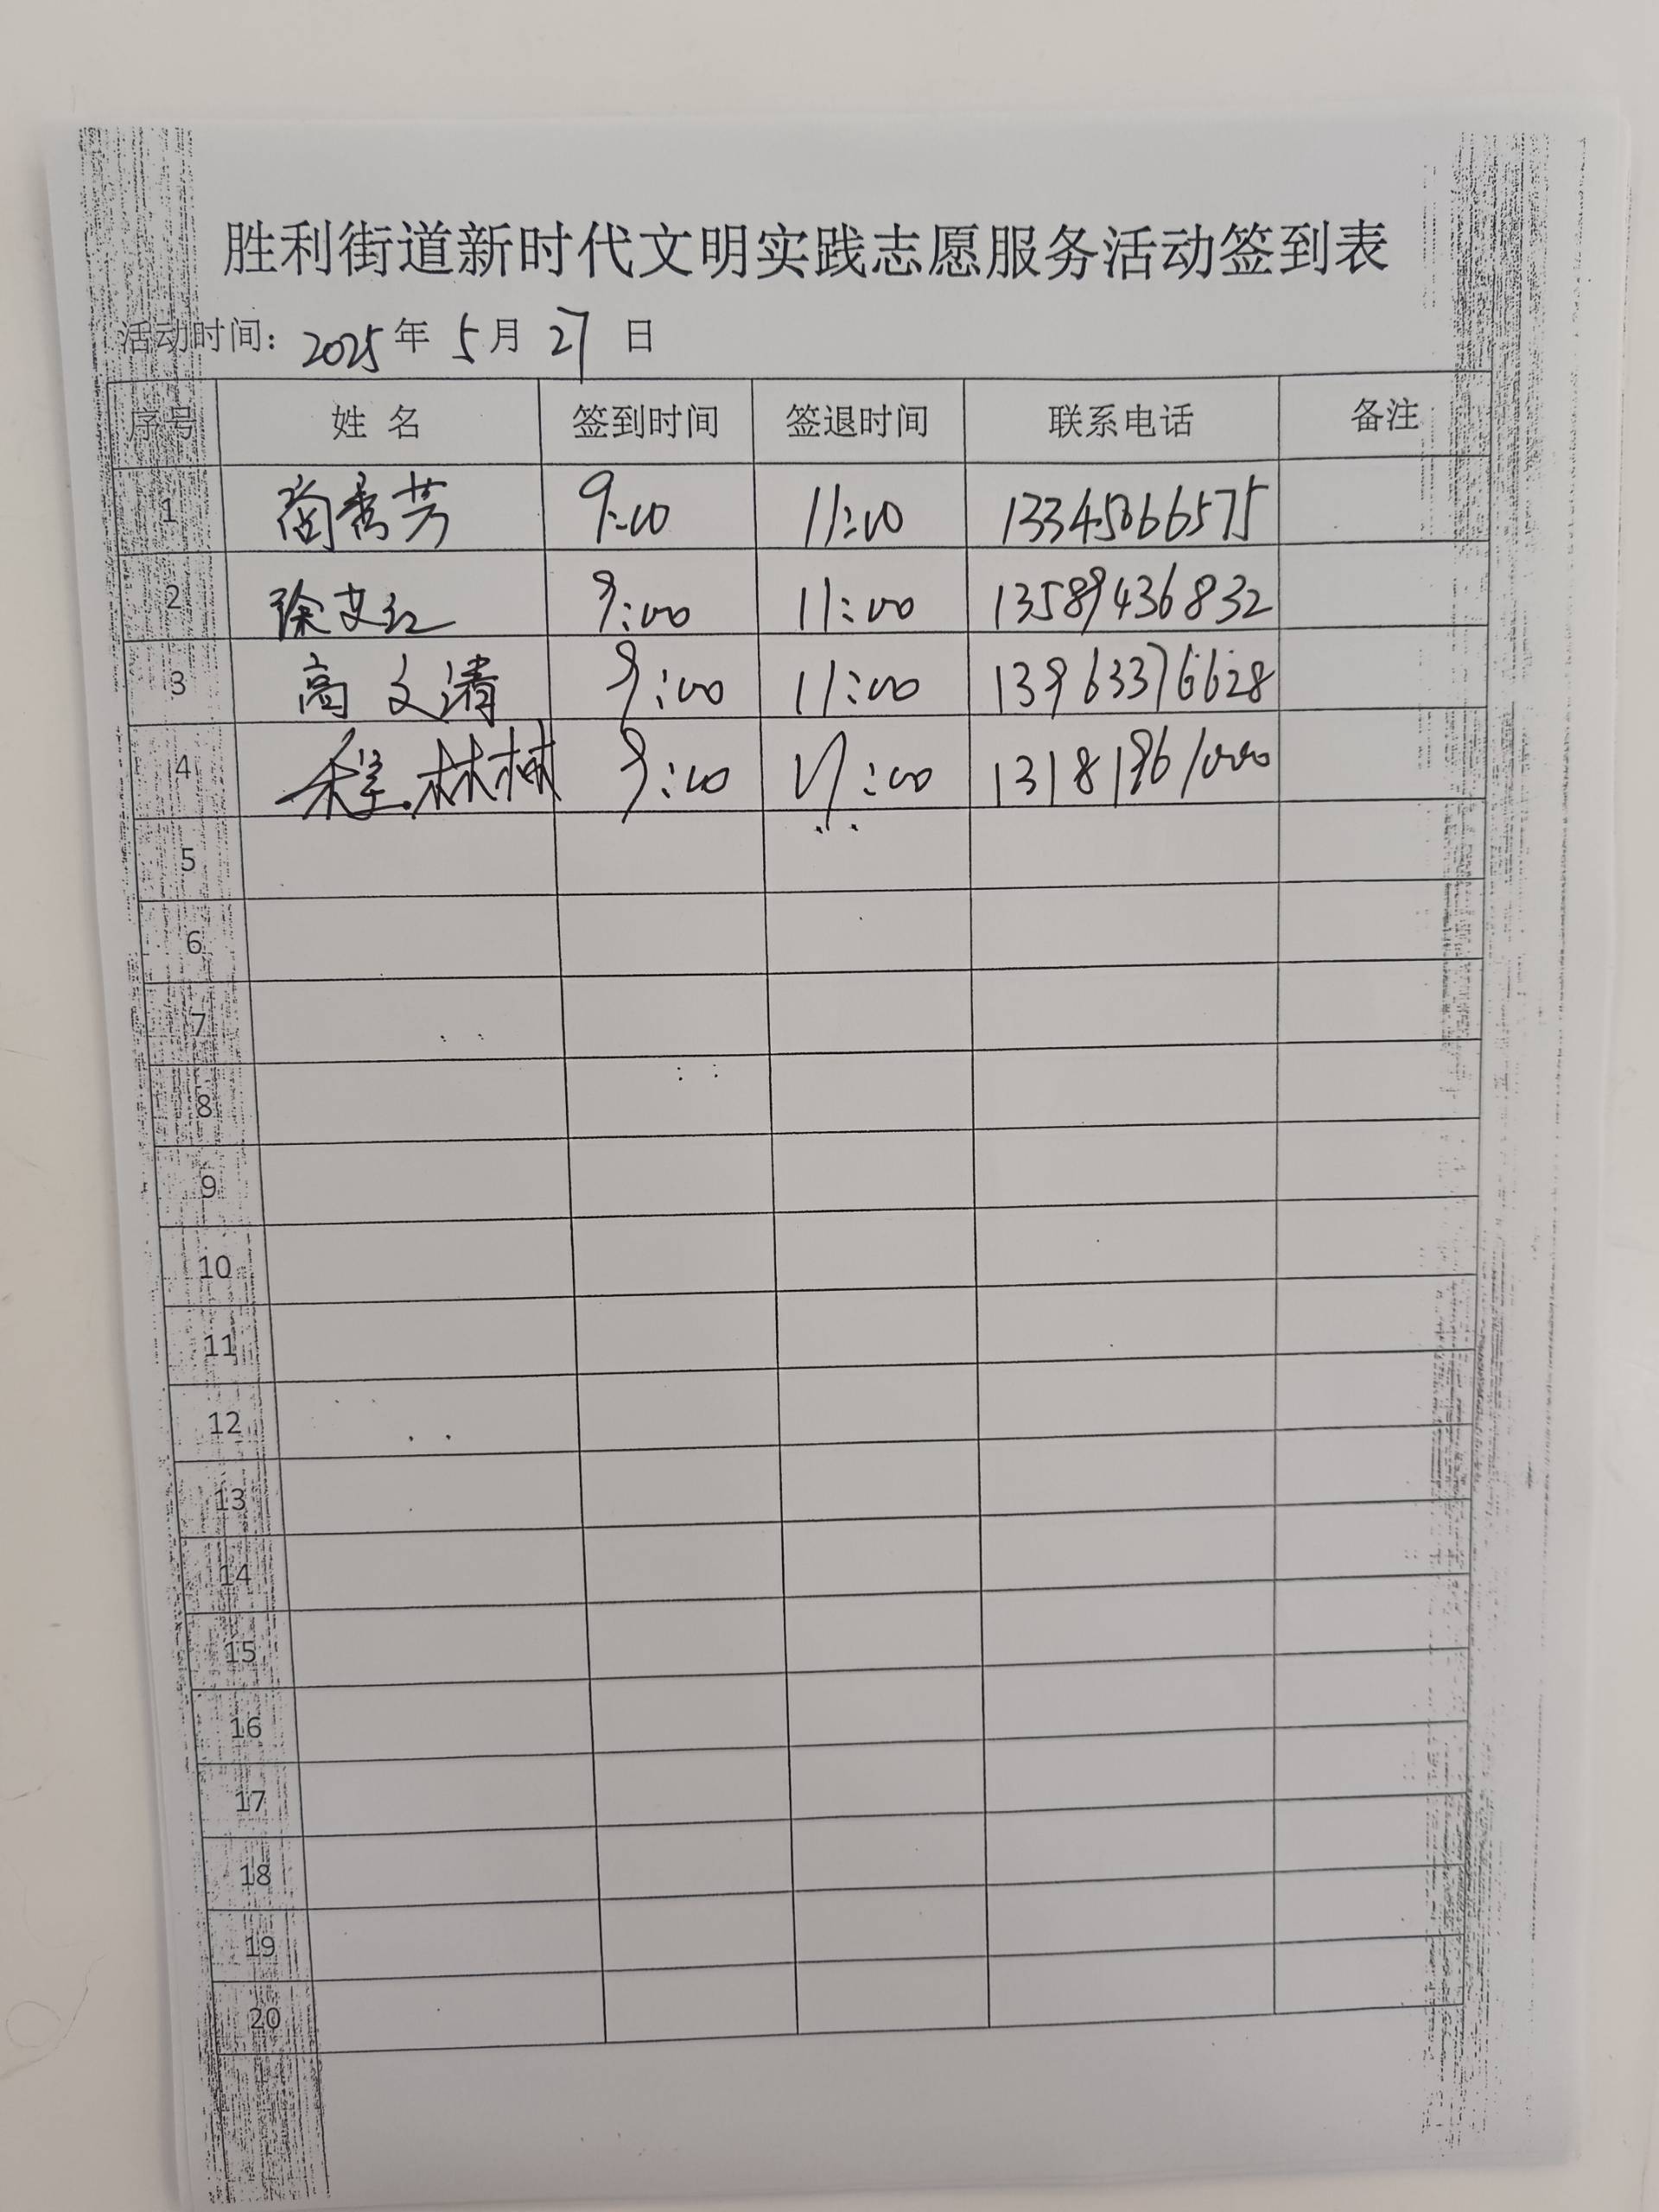 胜利街道新时代文明实践志愿服务活动签到表
活动时间: 2025 年 5 月 27 日
序号 姓 名 签到时间 签退时间 联系电话 备注
1 秀芳 9:00 11:00 13345066575
2 徐艾红 9:00 11:00 13589436832
3 高文清 9:00 11:00 13963376628
4 程林林 9:00 11:00 13181961000
5
6
7
8
9
10
11
12
13
14
15
16
17
18
19
20